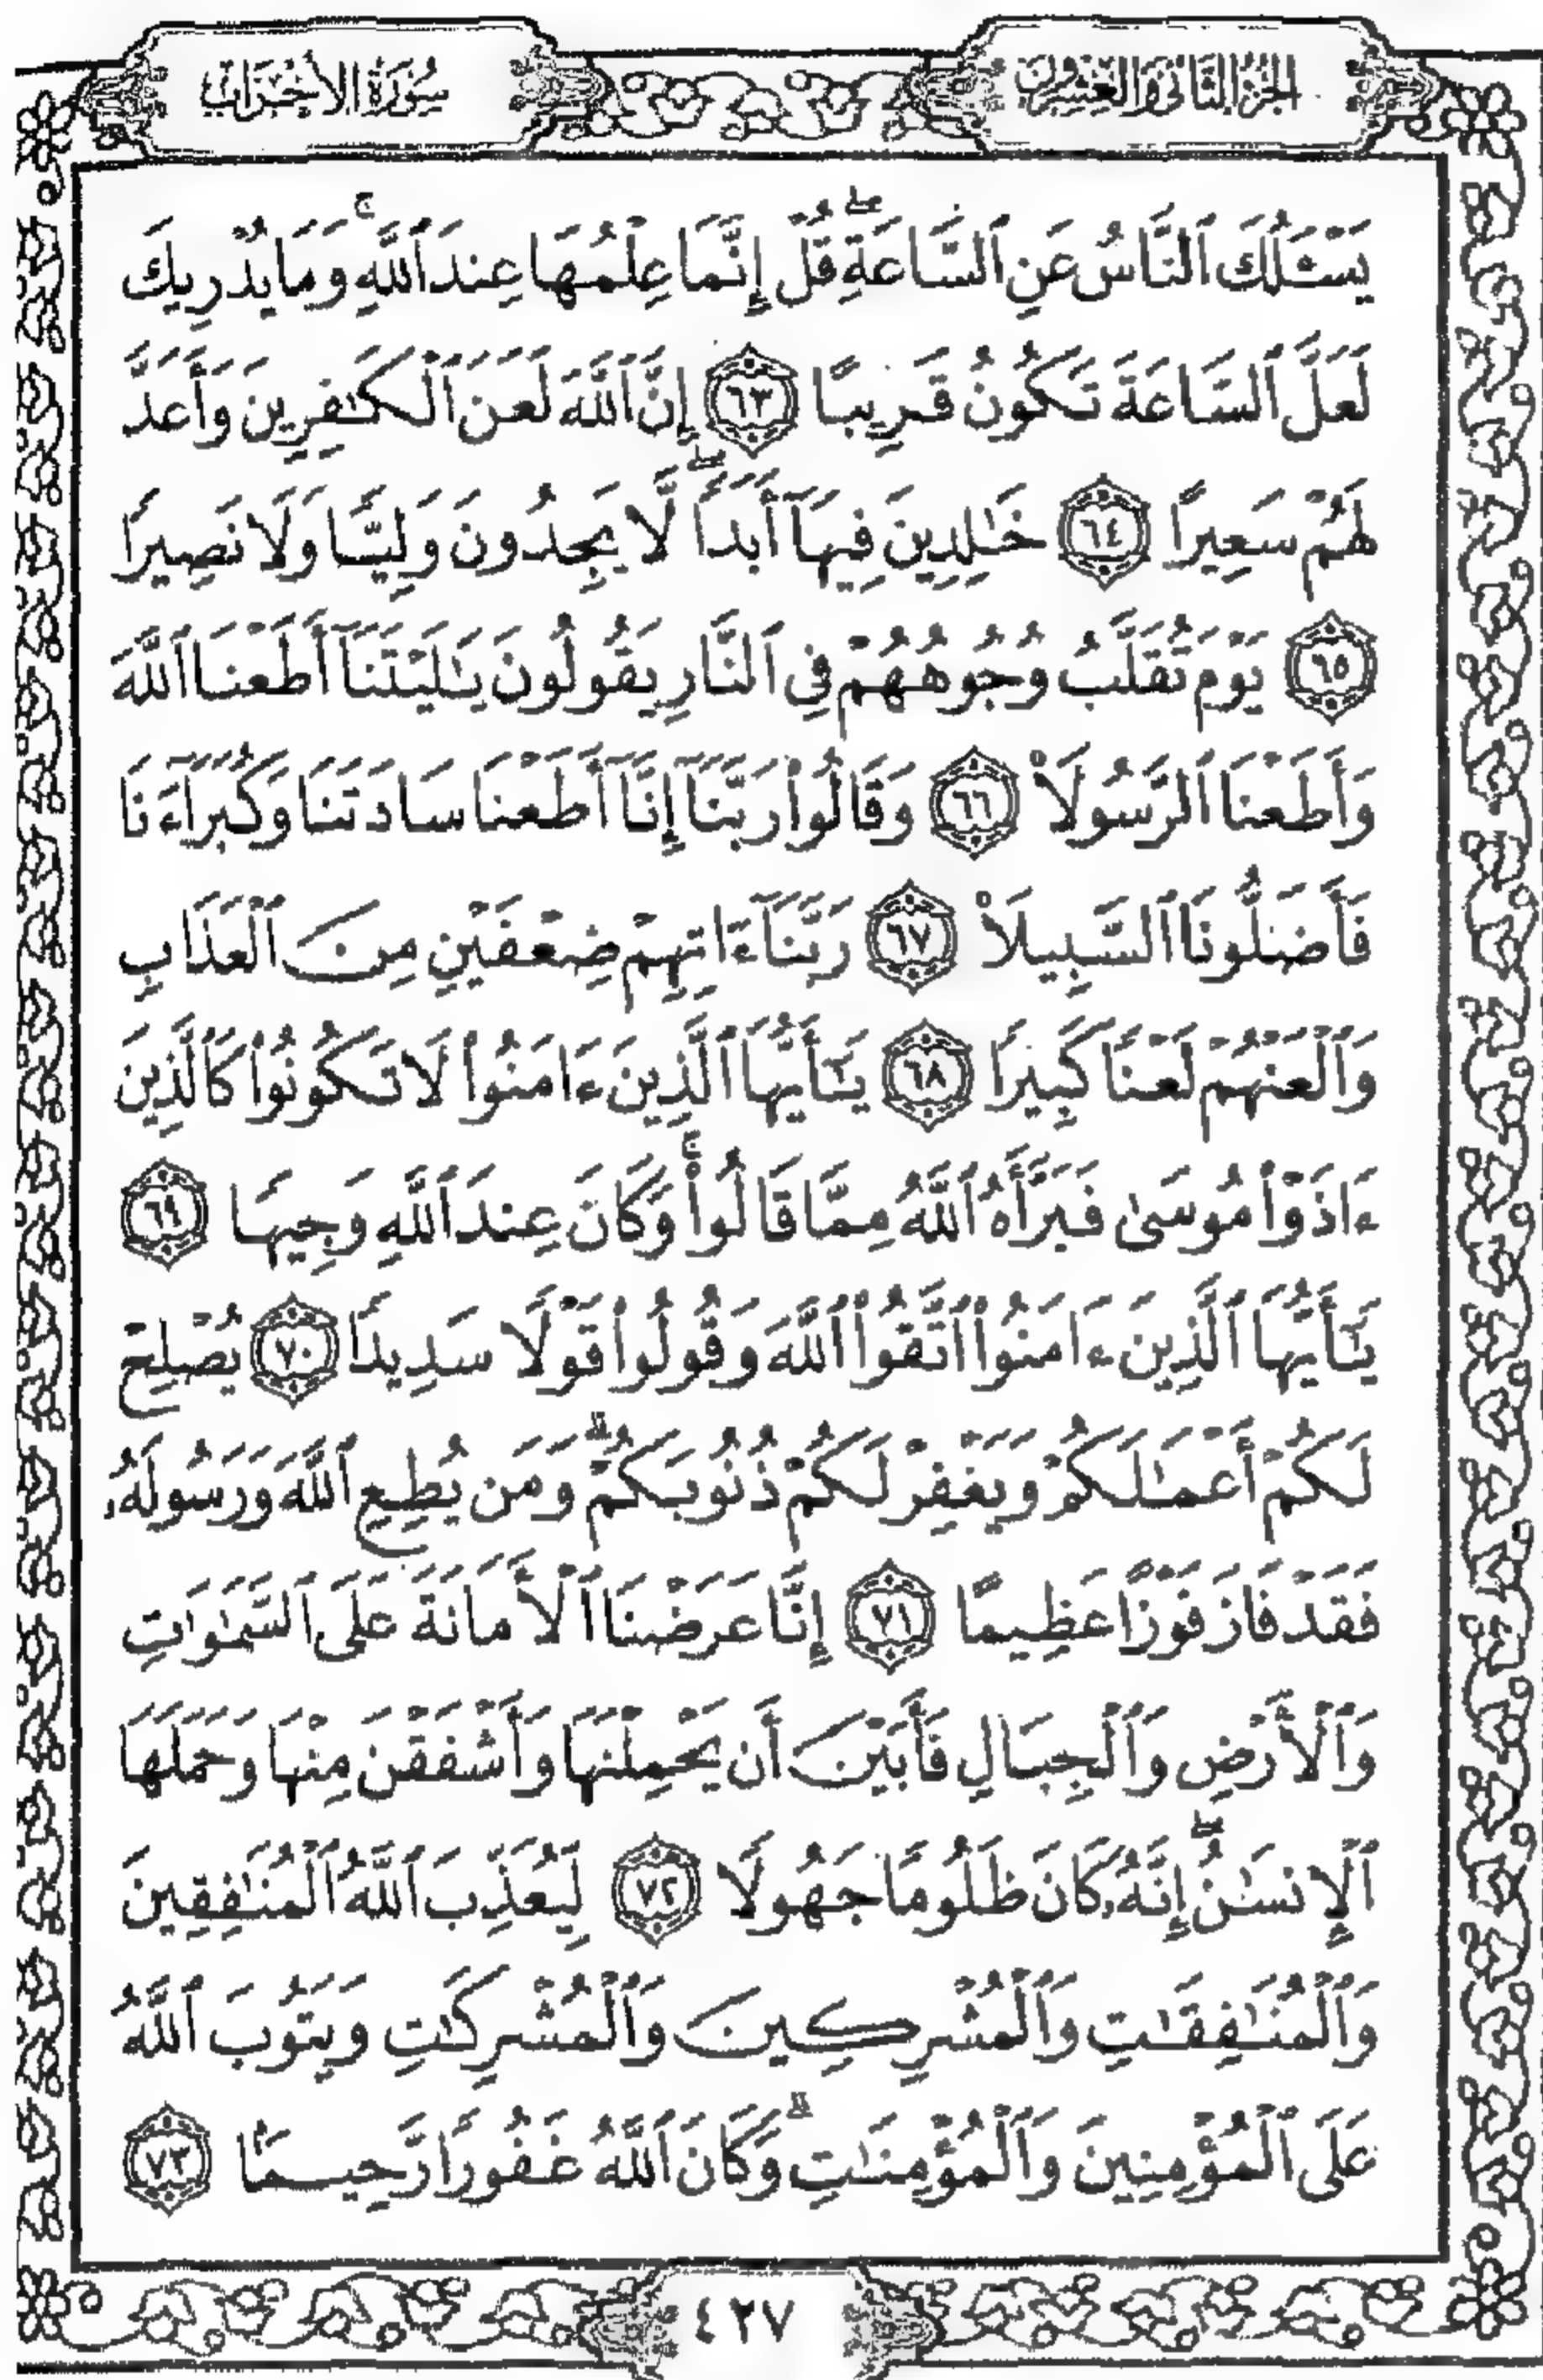 الجزء الثاني والعشرون
سورة الأحزاب
يَسْـَٔلُكَ ٱلنَّاسُ عَنِ ٱلسَّاعَةِۖ قُلْ إِنَّمَا عِلْمُهَا عِندَ ٱللَّهِۚ وَمَا يُدْرِيكَ
لَعَلَّ ٱلسَّاعَةَ تَكُونُ قَرِيبًا ٦٣ إِنَّ ٱللَّهَ لَعَنَ ٱلْكَـٰفِرِينَ وَأَعَدَّ
لَهُمْ سَعِيرًا ٦٤ خَـٰلِدِينَ فِيهَآ أَبَدًاۖ لَّا يَجِدُونَ وَلِيًّا وَلَا نَصِيرًا
٦٥ يَوْمَ تُقَلَّبُ وُجُوهُهُمْ فِى ٱلنَّارِ يَقُولُونَ يَـٰلَيْتَنَآ أَطَعْنَا ٱللَّهَ
وَأَطَعْنَا ٱلرَّسُولَا۠ ٦٦ وَقَالُوا۟ رَبَّنَآ إِنَّآ أَطَعْنَا سَادَتَنَا وَكُبَرَآءَنَا
فَأَضَلُّونَا ٱلسَّبِيلَا۠ ٦٧ رَبَّنَآ ءَاتِهِمْ ضِعْفَيْنِ مِنَ ٱلْعَذَابِ
وَٱلْعَنْهُمْ لَعْنًا كَبِيرًا ٦٨ يَـٰٓأَيُّهَا ٱلَّذِينَ ءَامَنُوا۟ لَا تَكُونُوا۟ كَٱلَّذِينَ
ءَاذَوْا۟ مُوسَىٰ فَبَرَّأَهُ ٱللَّهُ مِمَّا قَالُوا۟ۚ وَكَانَ عِندَ ٱللَّهِ وَجِيهًا ٦٩
يَـٰٓأَيُّهَا ٱلَّذِينَ ءَامَنُوا۟ ٱتَّقُوا۟ ٱللَّهَ وَقُولُوا۟ قَوْلًا سَدِيدًا ٧٠ يُصْلِحْ
لَكُمْ أَعْمَـٰلَكُمْ وَيَغْفِرْ لَكُمْ ذُنُوبَكُمْۗ وَمَن يُطِعِ ٱللَّهَ وَرَسُولَهُۥ
فَقَدْ فَازَ فَوْزًا عَظِيمًا ٧١ إِنَّا عَرَضْنَا ٱلْأَمَانَةَ عَلَى ٱلسَّمَـٰوَٰتِ
وَٱلْأَرْضِ وَٱلْجِبَالِ فَأَبَيْنَ أَن يَحْمِلْنَهَا وَأَشْفَقْنَ مِنْهَا وَحَمَلَهَا
ٱلْإِنسَـٰنُۖ إِنَّهُۥ كَانَ ظَلُومًا جَهُولًا ٧٢ لِّيُعَذِّبَ ٱللَّهُ ٱلْمُنَـٰفِقِينَ
وَٱلْمُنَـٰفِقَـٰتِ وَٱلْمُشْرِكِينَ وَٱلْمُشْرِكَـٰتِ وَيَتُوبَ ٱللَّهُ
عَلَى ٱلْمُؤْمِنِينَ وَٱلْمُؤْمِنَـٰتِۗ وَكَانَ ٱللَّهُ غَفُورًا رَّحِيمًۢا ٧٣
٤٢٧